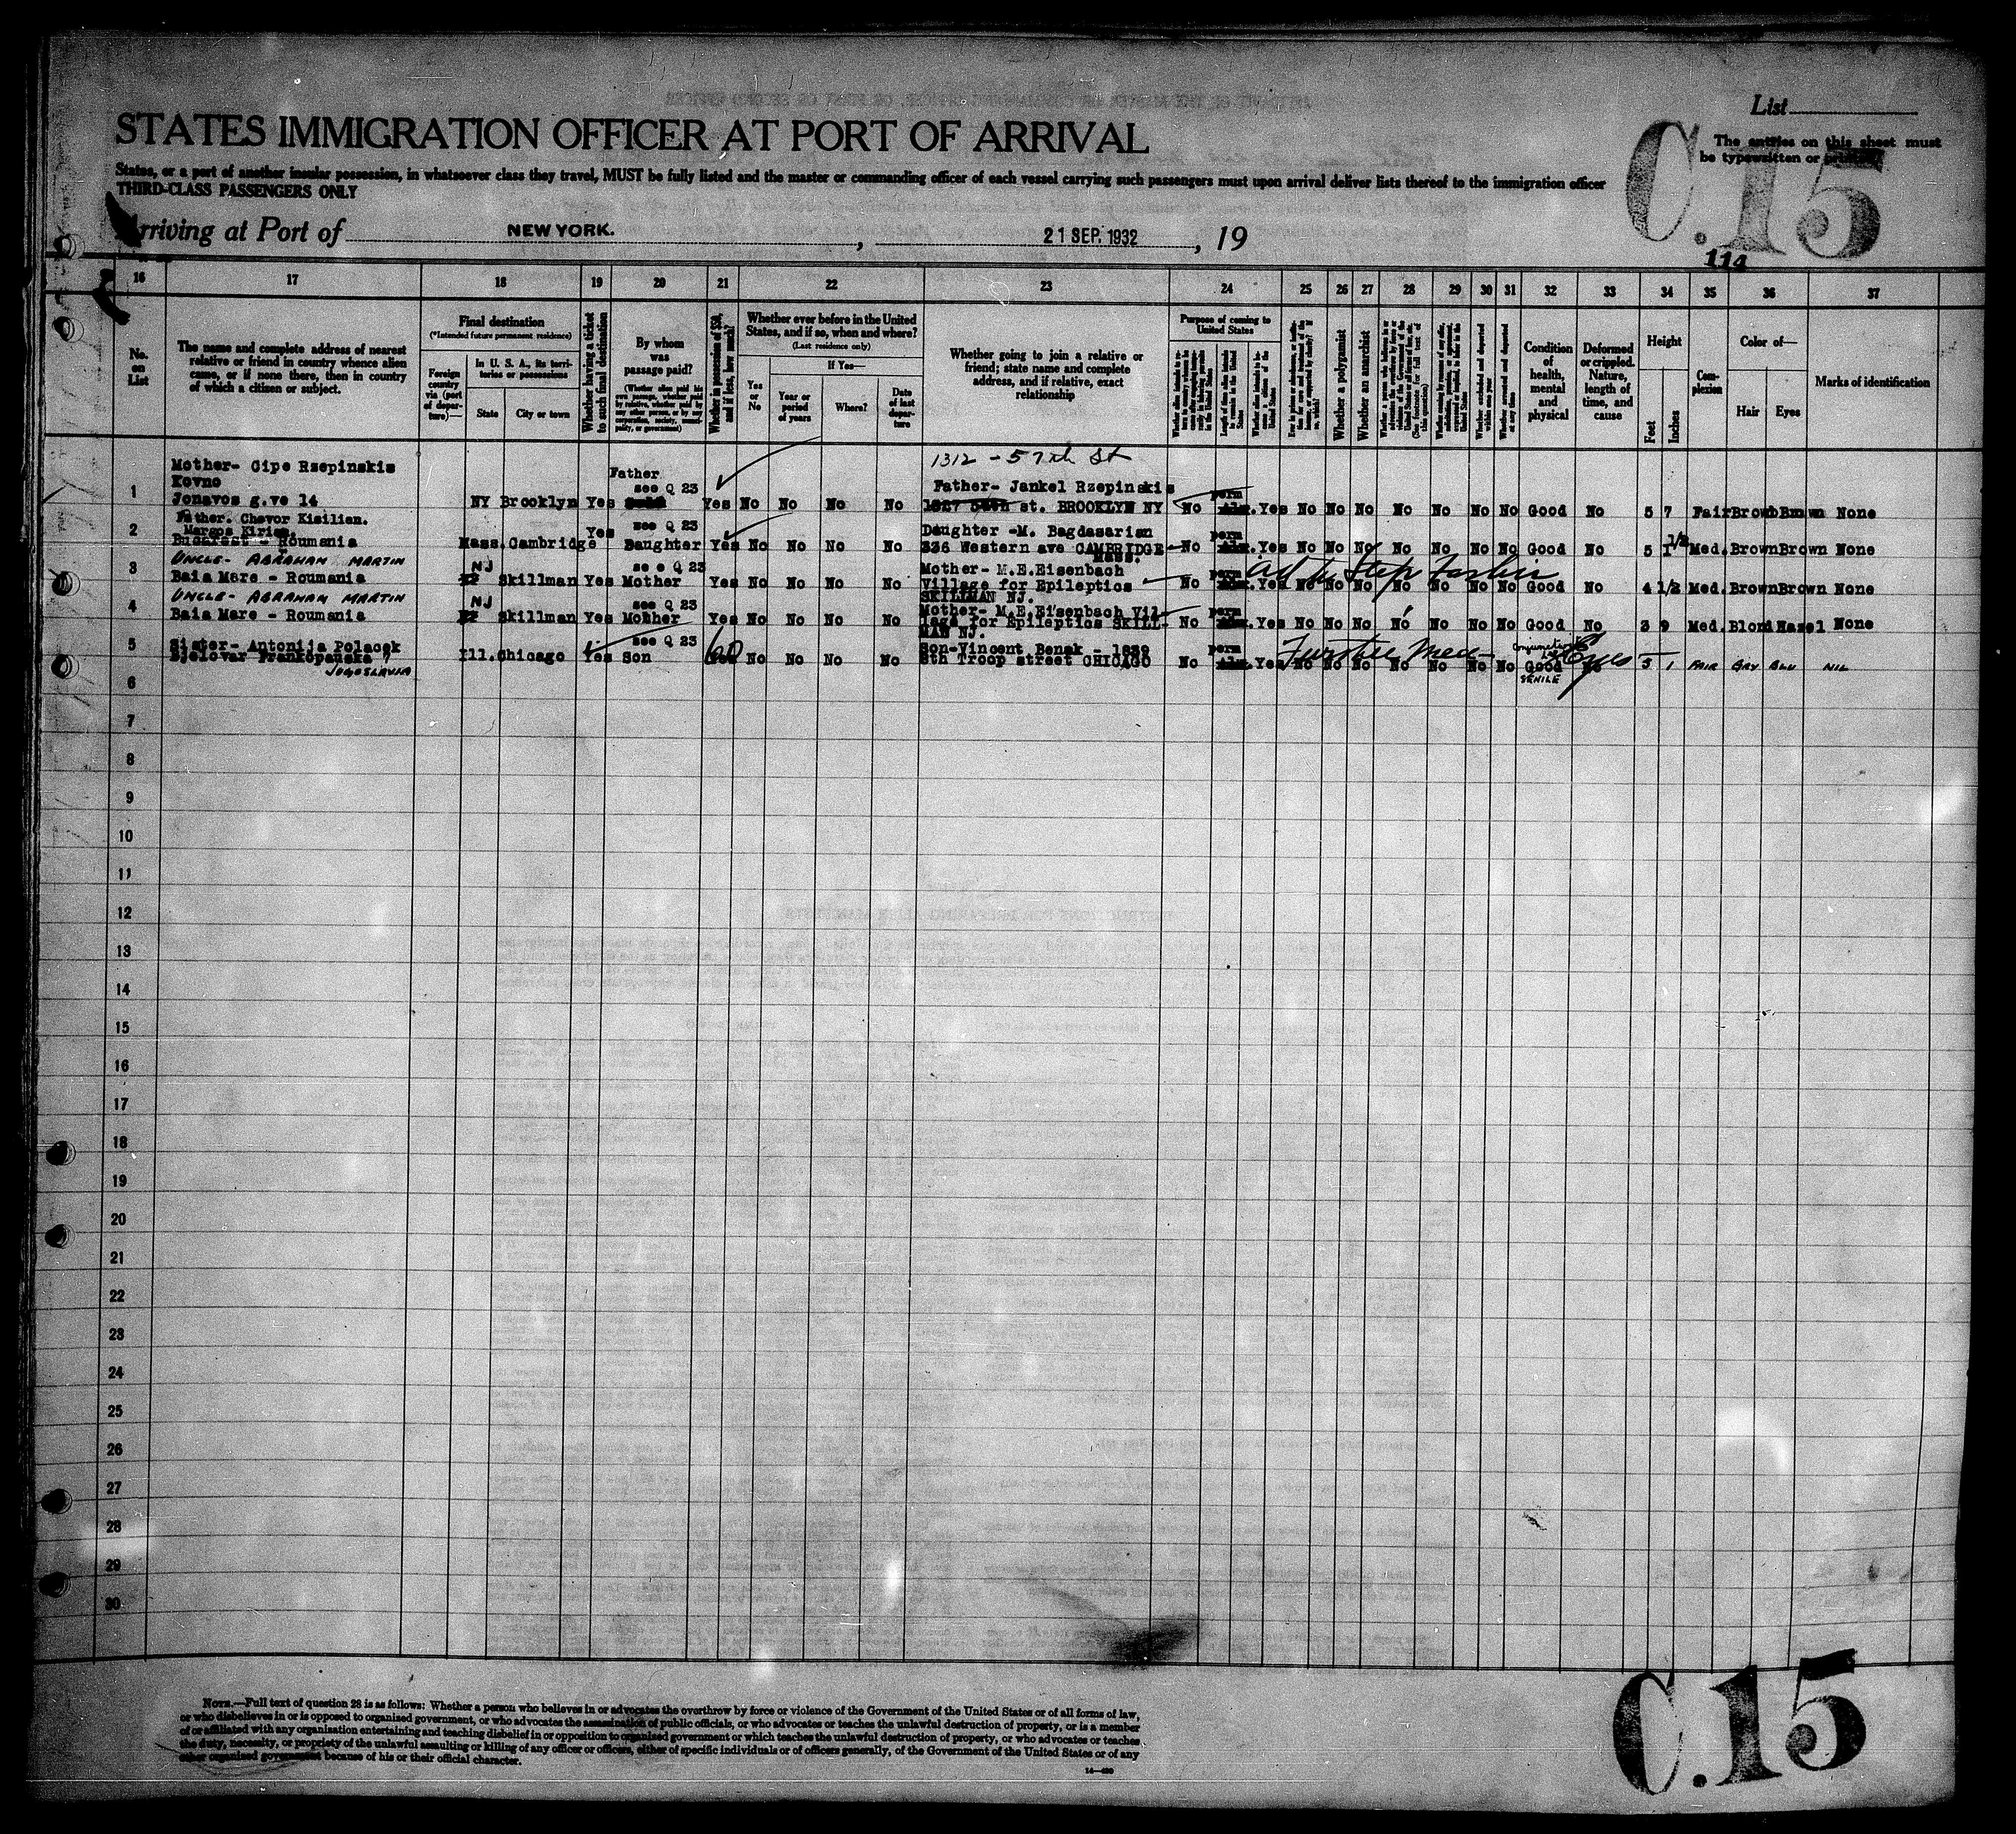 List
STATES IMMIGRATION OFFICER AT PORT OF ARRIVAL
The entries on this sheet must
be typewritten or printed.
C.15
States, or a port of another insular possession, in whatsoever class they travel, MUST be fully listed and the master or commanding officer of each vessel carrying such passengers must upon arrival deliver lists thereof to the immigration officer
THIRD-CLASS PASSENGERS ONLY
Arriving at Port of NEW YORK. , 21 SEP. 1932 , 19
114
16 17 18 19 20 21 22 23 24 25 26 27 28 29 30 31 32 33 34 35 36 37
No. on List
The name and complete address of nearest relative or friend in country whence alien came, or if none there, then in country of which a citizen or subject.
Final destination
(*Intended future permanent residence)
Foreign country via (port of departure)—
In U. S. A., its territories or possessions
State
City or town
Whether having a ticket to such final destination
By whom was passage paid?
(Whether alien paid his own passage, whether paid by relative, whether paid by any other person, or by any corporation, society, municipality, or government)
Whether in possession of $50, and if less, how much?
Whether ever before in the United States, and if so, when and where?
(Last residence only)
Yes or No
If Yes—
Year or period of years
Where?
Date of last departure
Whether going to join a relative or friend; state name and complete address, and if relative, exact relationship
Purpose of coming to United States
Length of time alien intends to remain in the United States
Whether a polygamist
Whether an anarchist
Condition of health, mental and physical
Deformed or crippled. Nature, length of time, and cause
Height
Feet
Inches
Complexion
Color of—
Hair
Eyes
Marks of identification
1312 - 57th St
Mother- Cipe Rzepinskis
Kovno
Jonavos g.ve 14
1 NY Brooklyn Yes Father see Q 23 Yes No No No No Father- Jankel Rzepinskis
st. BROOKLYN NY No perm Yes No No No No No No No Good No 5 7 Fair Brown Brown None
Father. Chevor Kisilian.
Bucarest - Roumania
2 Mass. Cambridge Yes see Q 23 Daughter Yes No No No No Daughter -M. Bagdasarian
336 Western ave CAMBRIDGE MASS. No perm Yes No No No No No No No Good No 5 1 1/2 Med. Brown Brown None
UNCLE- ABRAHAM MARTIN
Baia Mare - Roumania
3 NJ Skillman Yes see Q 23 Mother Yes No No No No Mother- M.E.Eisenbach
Village for Epileptics
SKILLMAN NJ. No perm Yes No No No No No No No Good No 4 1/2 Med. Brown Brown None
UNCLE- ABRAHAM MARTIN
Baia Mare - Roumania
4 NJ Skillman Yes see Q 23 Mother Yes No No No No Mother- M.E.Eisenbach Vil-
lage for Epileptics SKILL-
MAN NJ. No perm Yes No No No No No No No Good No 3 9 Med. Blond Hazel None
Sister- Antonija Polacek
Bjelovar Frankopanska 7
JUGOSLAVIA
5 Ill. Chicago Yes see Q 23 Son 60 No No No No Son-Vincent Benak - 1839
8th Troop street CHICAGO No perm Yes No No No No No No No Good SENILE Eyes 5 1 FAIR GRY BLU NIL
6
7
8
9
10
11
12
13
14
15
16
17
18
19
20
21
22
23
24
25
26
27
28
29
30
NOTE.—Full text of question 28 is as follows: Whether a person who believes in or advocates the overthrow by force or violence of the Government of the United States or of all forms of law,
or who disbelieves in or is opposed to organized government, or who advocates the assassination of public officials, or who advocates or teaches the unlawful destruction of property, or is a member
of or affiliated with any organization entertaining and teaching disbelief in or opposition to organized government or which teaches the unlawful destruction of property, or who advocates or teaches
the duty, necessity, or propriety of the unlawful assaulting or killing of any officer or officers, either of specific individuals or of officers generally, of the Government of the United States or of any
other organized government because of his or their official character.
C.15